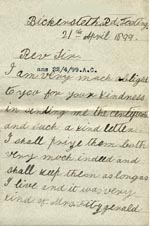 Bickersteth Rd, Tooting,
21st April 1899.
Rev Sir,
ans 22/4/99. A.C.
I am very much oblige
to you for your kindness
in sending me the
and such a kind letter.
I shall prize them both
very much indeed and
shall keep them as long as
I live and it was very
kind of Mrs. Fitzgerald